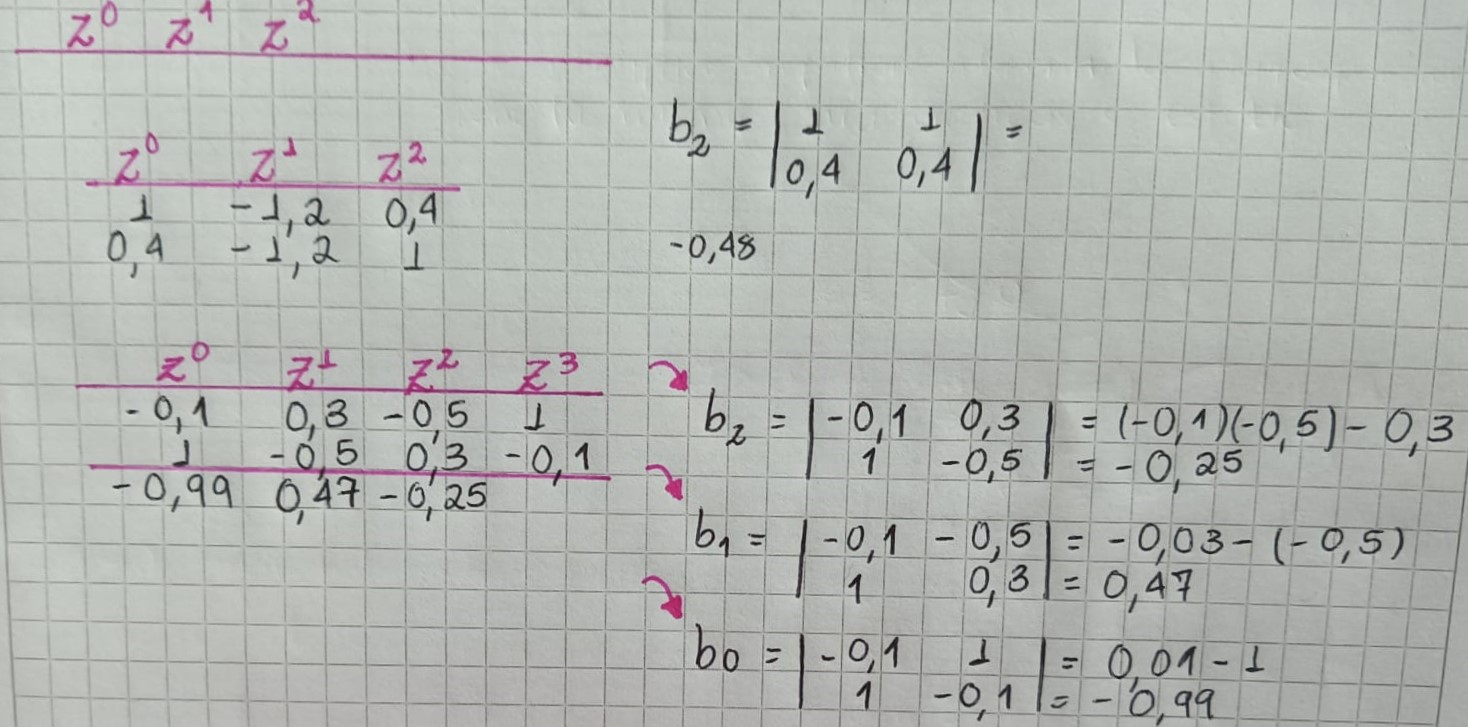 z⁰ z¹ z²
z⁰ z¹ z²
1 -1,2 0,4
0,4 -1,2 1
b₂ = | 1 1 | =
| 0,4 0,4 |
-0,48
z⁰ z¹ z² z³
-0,1 0,3 -0,5 1
1 -0,5 0,3 -0,1
-0,99 0,47 -0,25
b₂ = | -0,1 0,3 | = (-0,1)(-0,5) - 0,3
| 1 -0,5 | = -0,25
b₁ = | -0,1 -0,5 | = -0,03 - (-0,5)
| 1 0,3 | = 0,47
b0 = | -0,1 1 | = 0,01 - 1
| 1 -0,1 | = -0,99